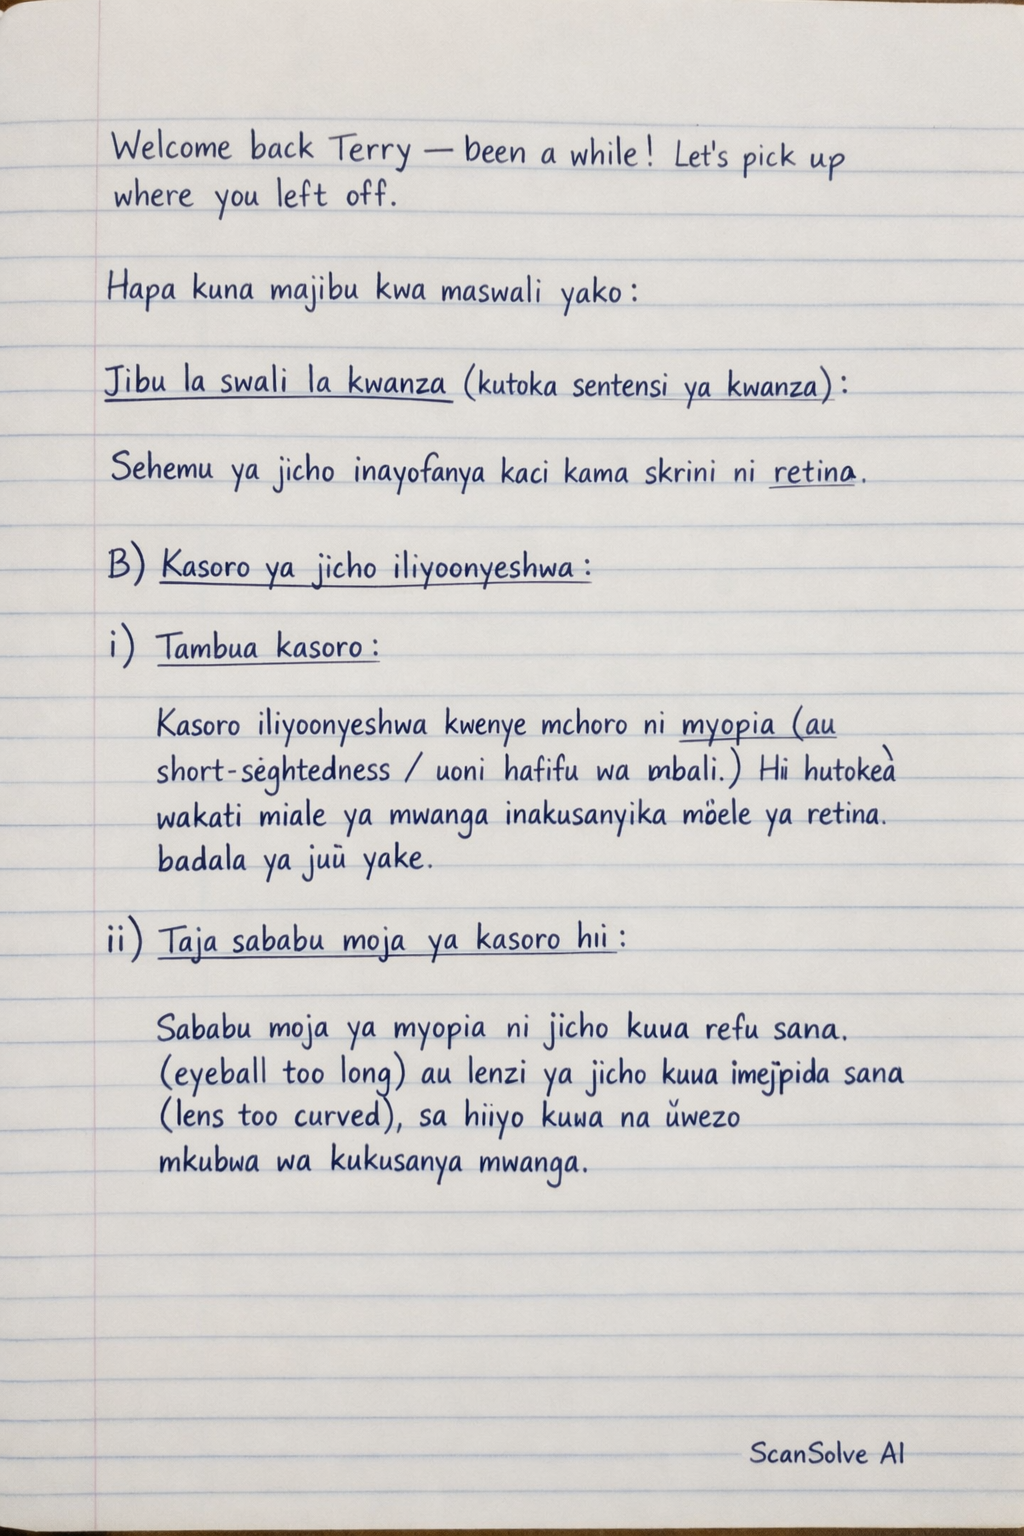 Welcome back Terry — been a while! Let's pick up
where you left off.
Hapa kuna majibu kwa maswali yako:
Jibu la swali la kwanza (kutoka sentensi ya kwanza):
Sehemu ya jicho inayofanya kaci kama skrini ni retina.
B) Kasoro ya jicho iliyoonyeshwa:
i) Tambua kasoro:
Kasoro iliyoonyeshwa kwenye mchoro ni myopia (au
short-sėghtedness / uoni hafifu wa mbali.) Hii hutokeà
wakati miale ya mwanga inakusanyika möele ya retina.
badala ya juū yake.
ii) Taja sababu moja ya kasoro hii:
Sababu moja ya myopia ni jicho kuua refu sana.
(eyeball too long) au lenzi ya jicho kuua imejpida sana
(lens too curved), sa hiiyo kuwa na ŭwezo
mkubwa wa kukusanya mwanga.
ScanSolve AI